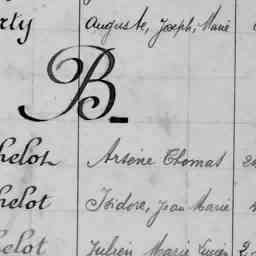 rty Auguste, Joseph, Marie
B
helot Arsène Thomas 2
helot Isidore, Jean Marie
helot Julien Marie Lucien 2